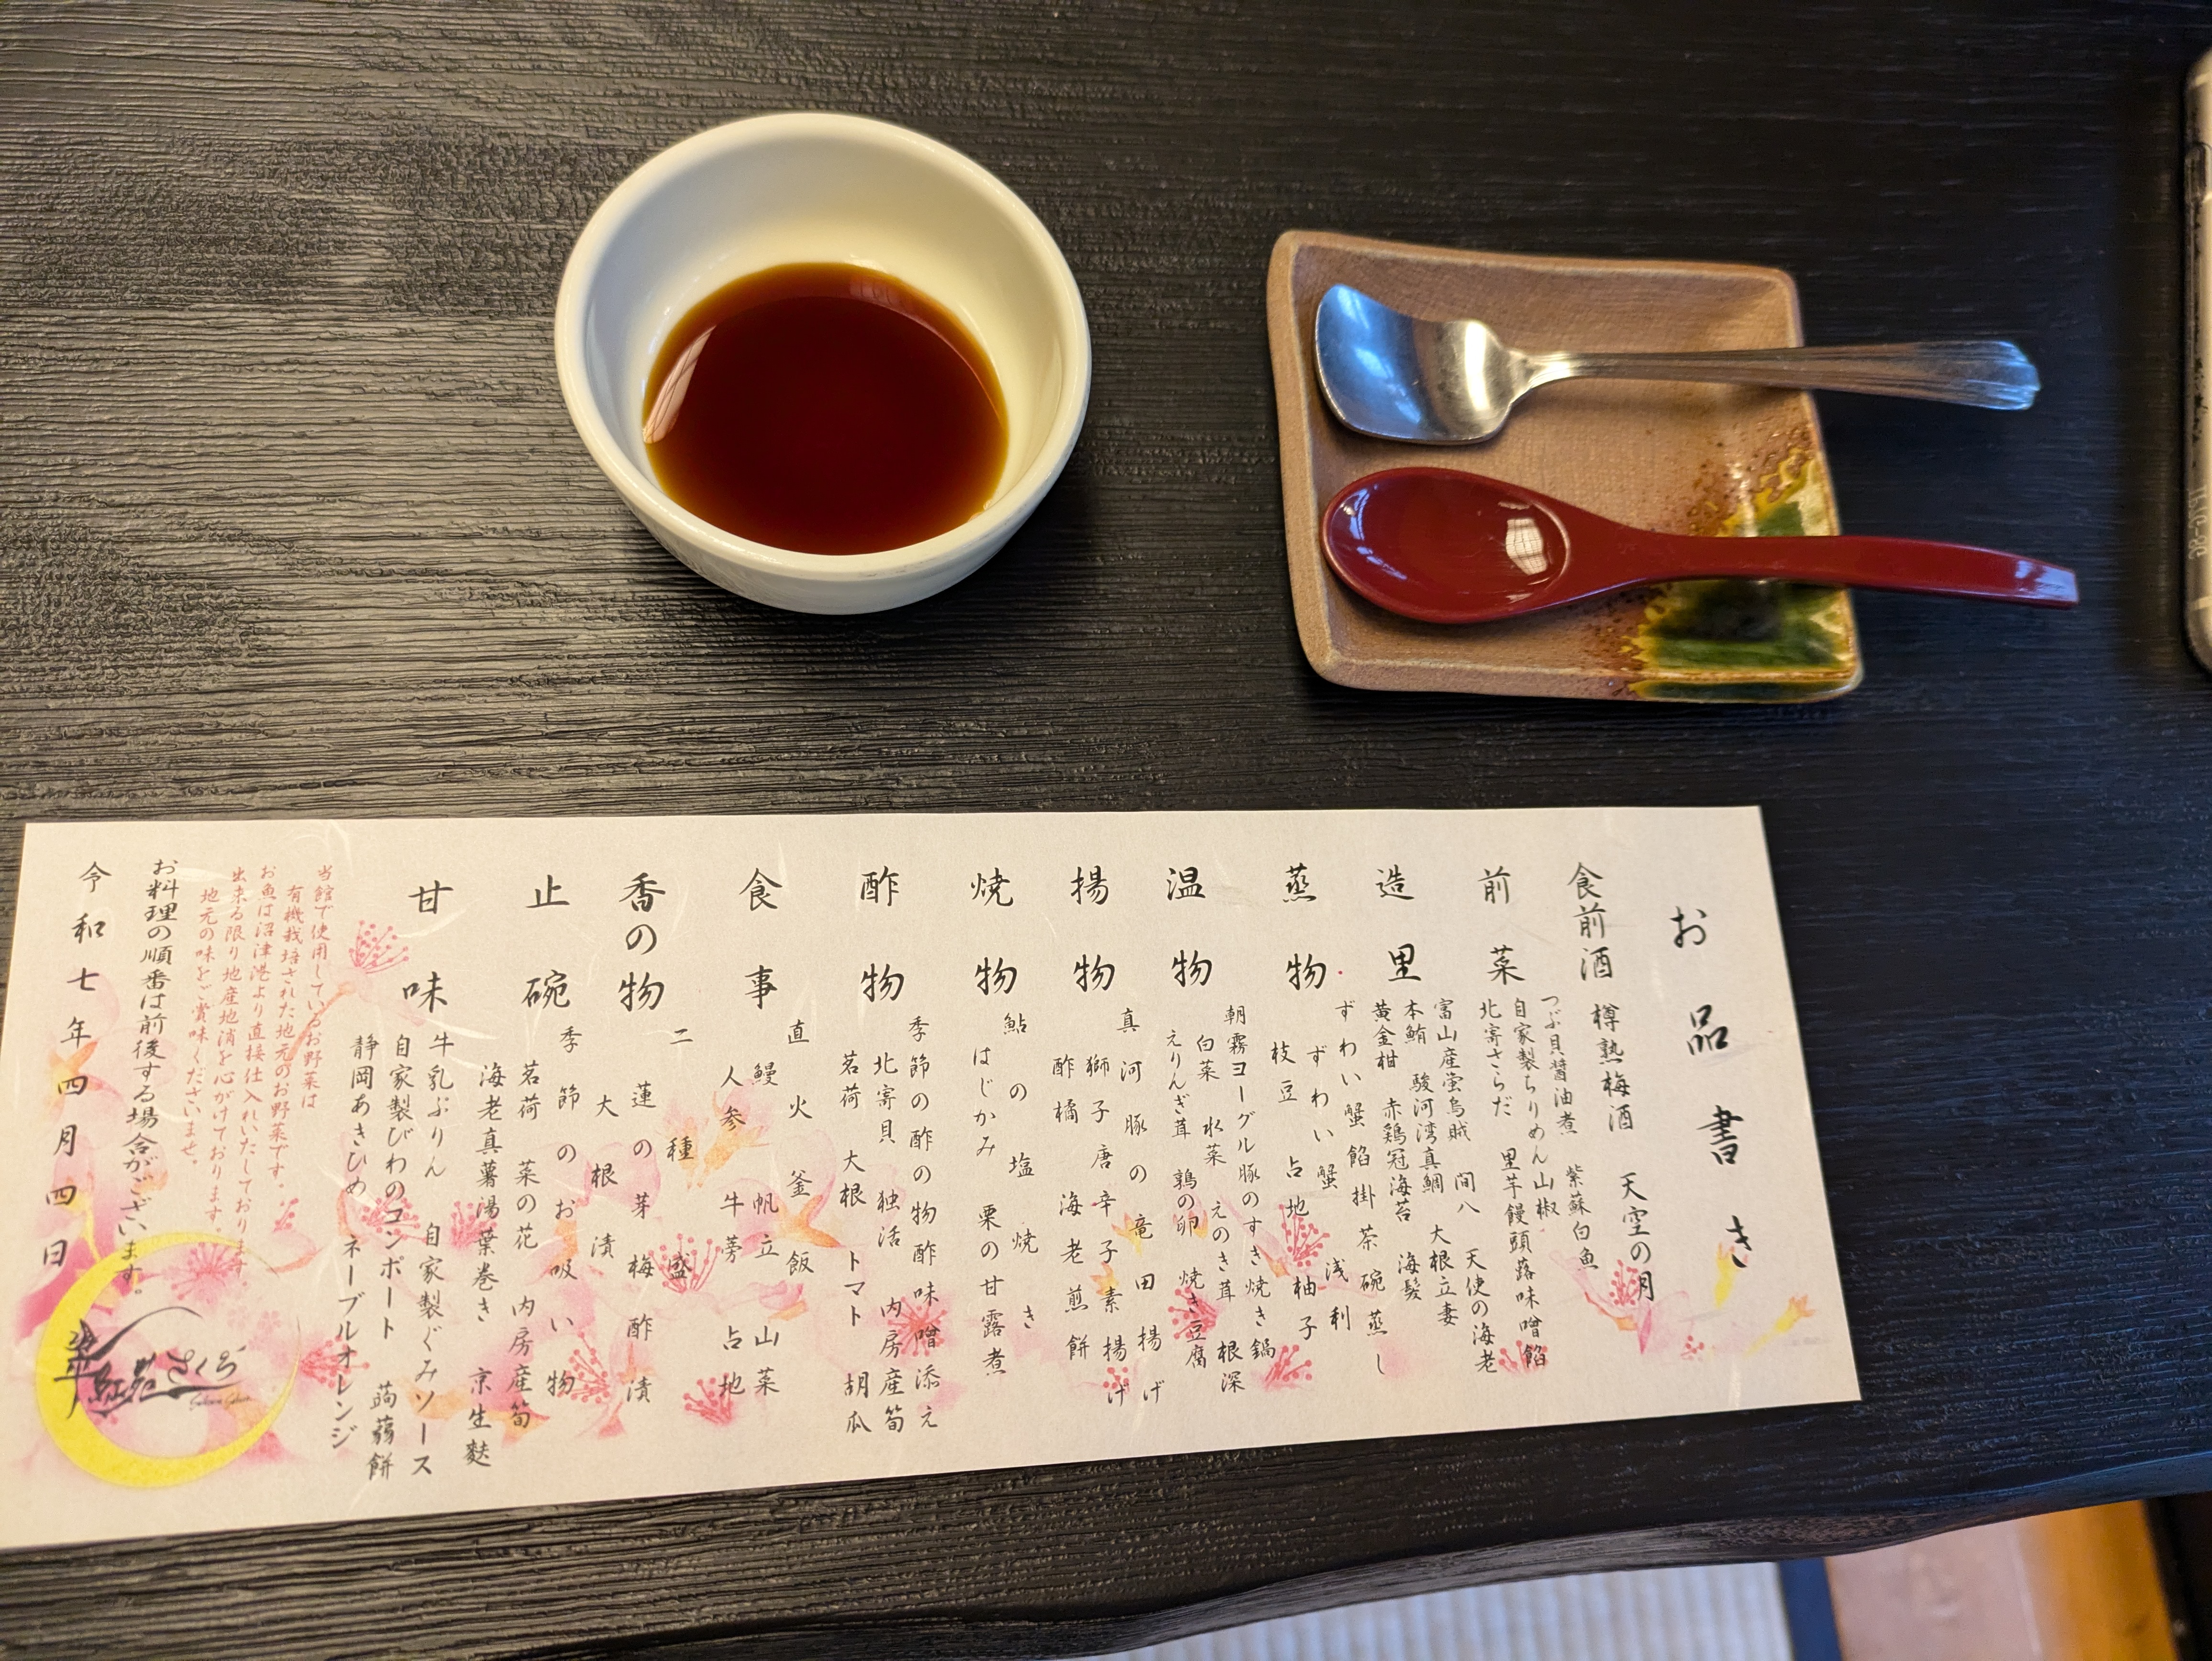 お品書き
食前酒
樽熟梅酒　天空の月
前菜
つぶ貝醤油煮　紫蘇白魚
自家製ちりめん山椒
北寄さらだ　里芋饅頭蕗味噌餡
造里
富山産蛍烏賊　間八　天使の海老
本鮪　駿河湾真鯛　大根立妻
黄金柑　赤鶏冠海苔　海髪
蒸物
ずわい蟹餡掛茶碗蒸し
ずわい蟹　浅利
枝豆　占地　柚子
温物
朝霧ヨーグル豚のすき焼き鍋
白菜　水菜　えのき茸　根深
えりんぎ茸　鶉の卵　焼き豆腐
揚物
真河豚の竜田揚げ
獅子唐辛子素揚げ
酢橘　海老煎餅
焼物
鮎の塩焼き
はじかみ　栗の甘露煮
酢物
季節の酢の物酢味噌添え
北寄貝　独活　内房産筍
茗荷　大根　トマト　胡瓜
食事
直火釜飯
鰻　帆立　山菜
人参　牛蒡　占地
香の物
二種盛
蓮の芽梅酢漬
大根漬
止碗
季節のお吸い物
茗荷　菜の花　内房産筍
海老真薯湯葉巻き　京生麩
甘味
牛乳ぷりん　自家製ぐみソース
自家製びわのコンポート　蒟蒻餅
静岡あきひめ　ネーブルオレンジ
当館で使用しているお野菜は
有機栽培された地元のお野菜です。
お魚は沼津港より直接仕入れいたしております。
出来る限り地産地消を心がけております。
地元の味をご賞味くださいませ。
お料理の順番は前後する場合がございます。
令和七年四月四日
さくら